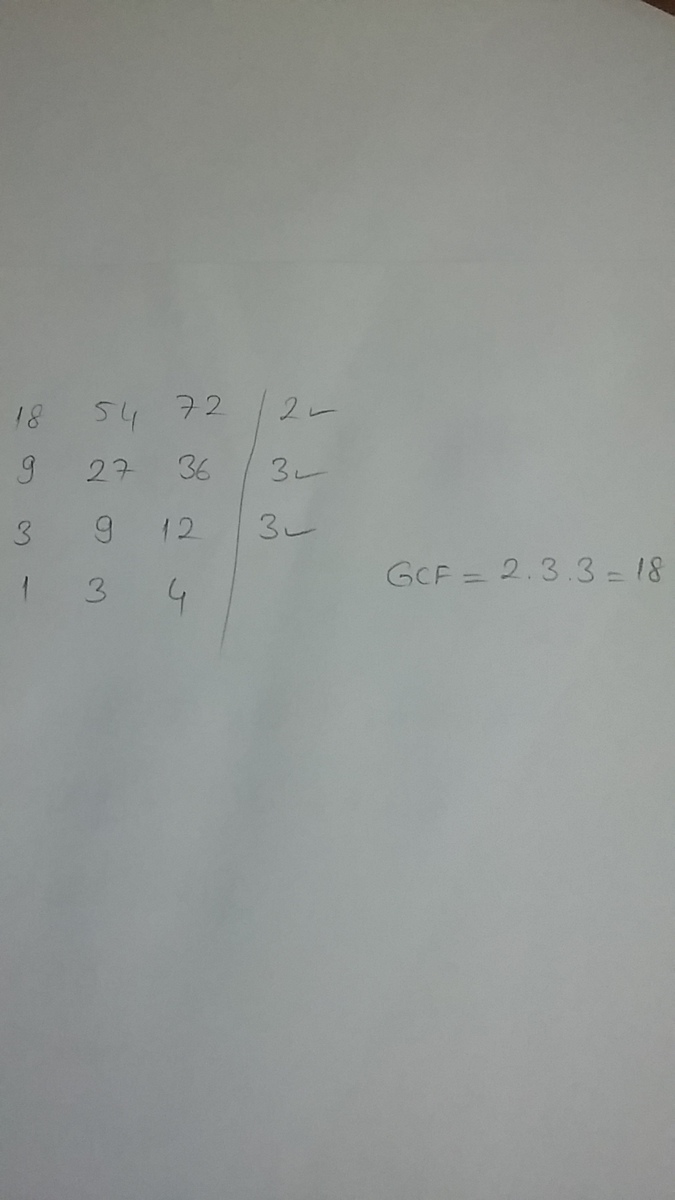 18 54 72 / 2 ✓
9 27 36 / 3 ✓
3 9 12 / 3 ✓
1 3 4
GCF = 2.3.3 = 18